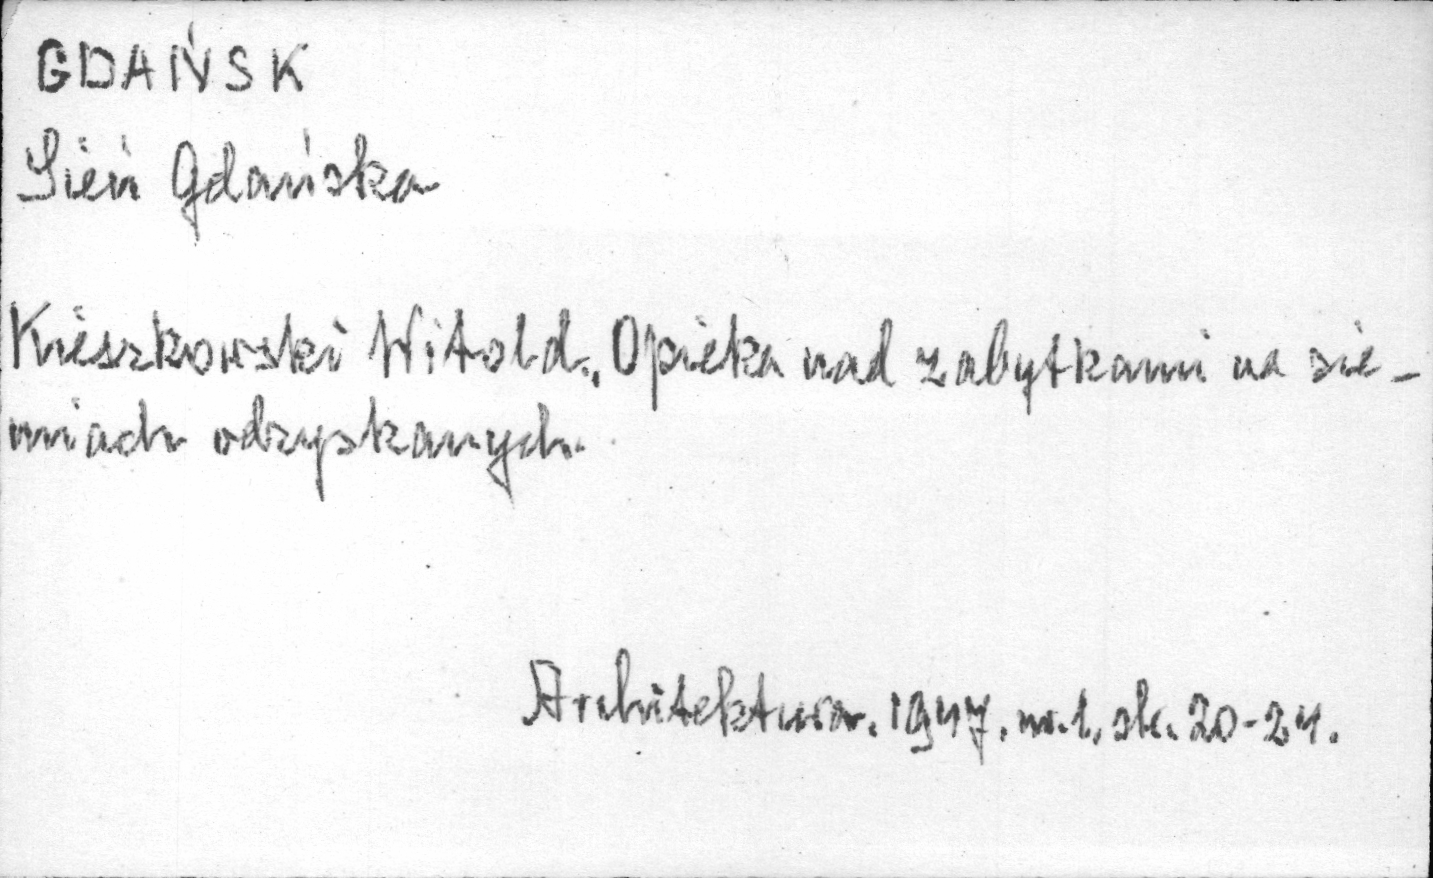 GDAŃSK
Sień Gdańska
Kieszkowski Witold., Opieka nad zabytkami na zie-
miach odzyskanych.
Architektura. 1947, nr. 1, str. 20-24.